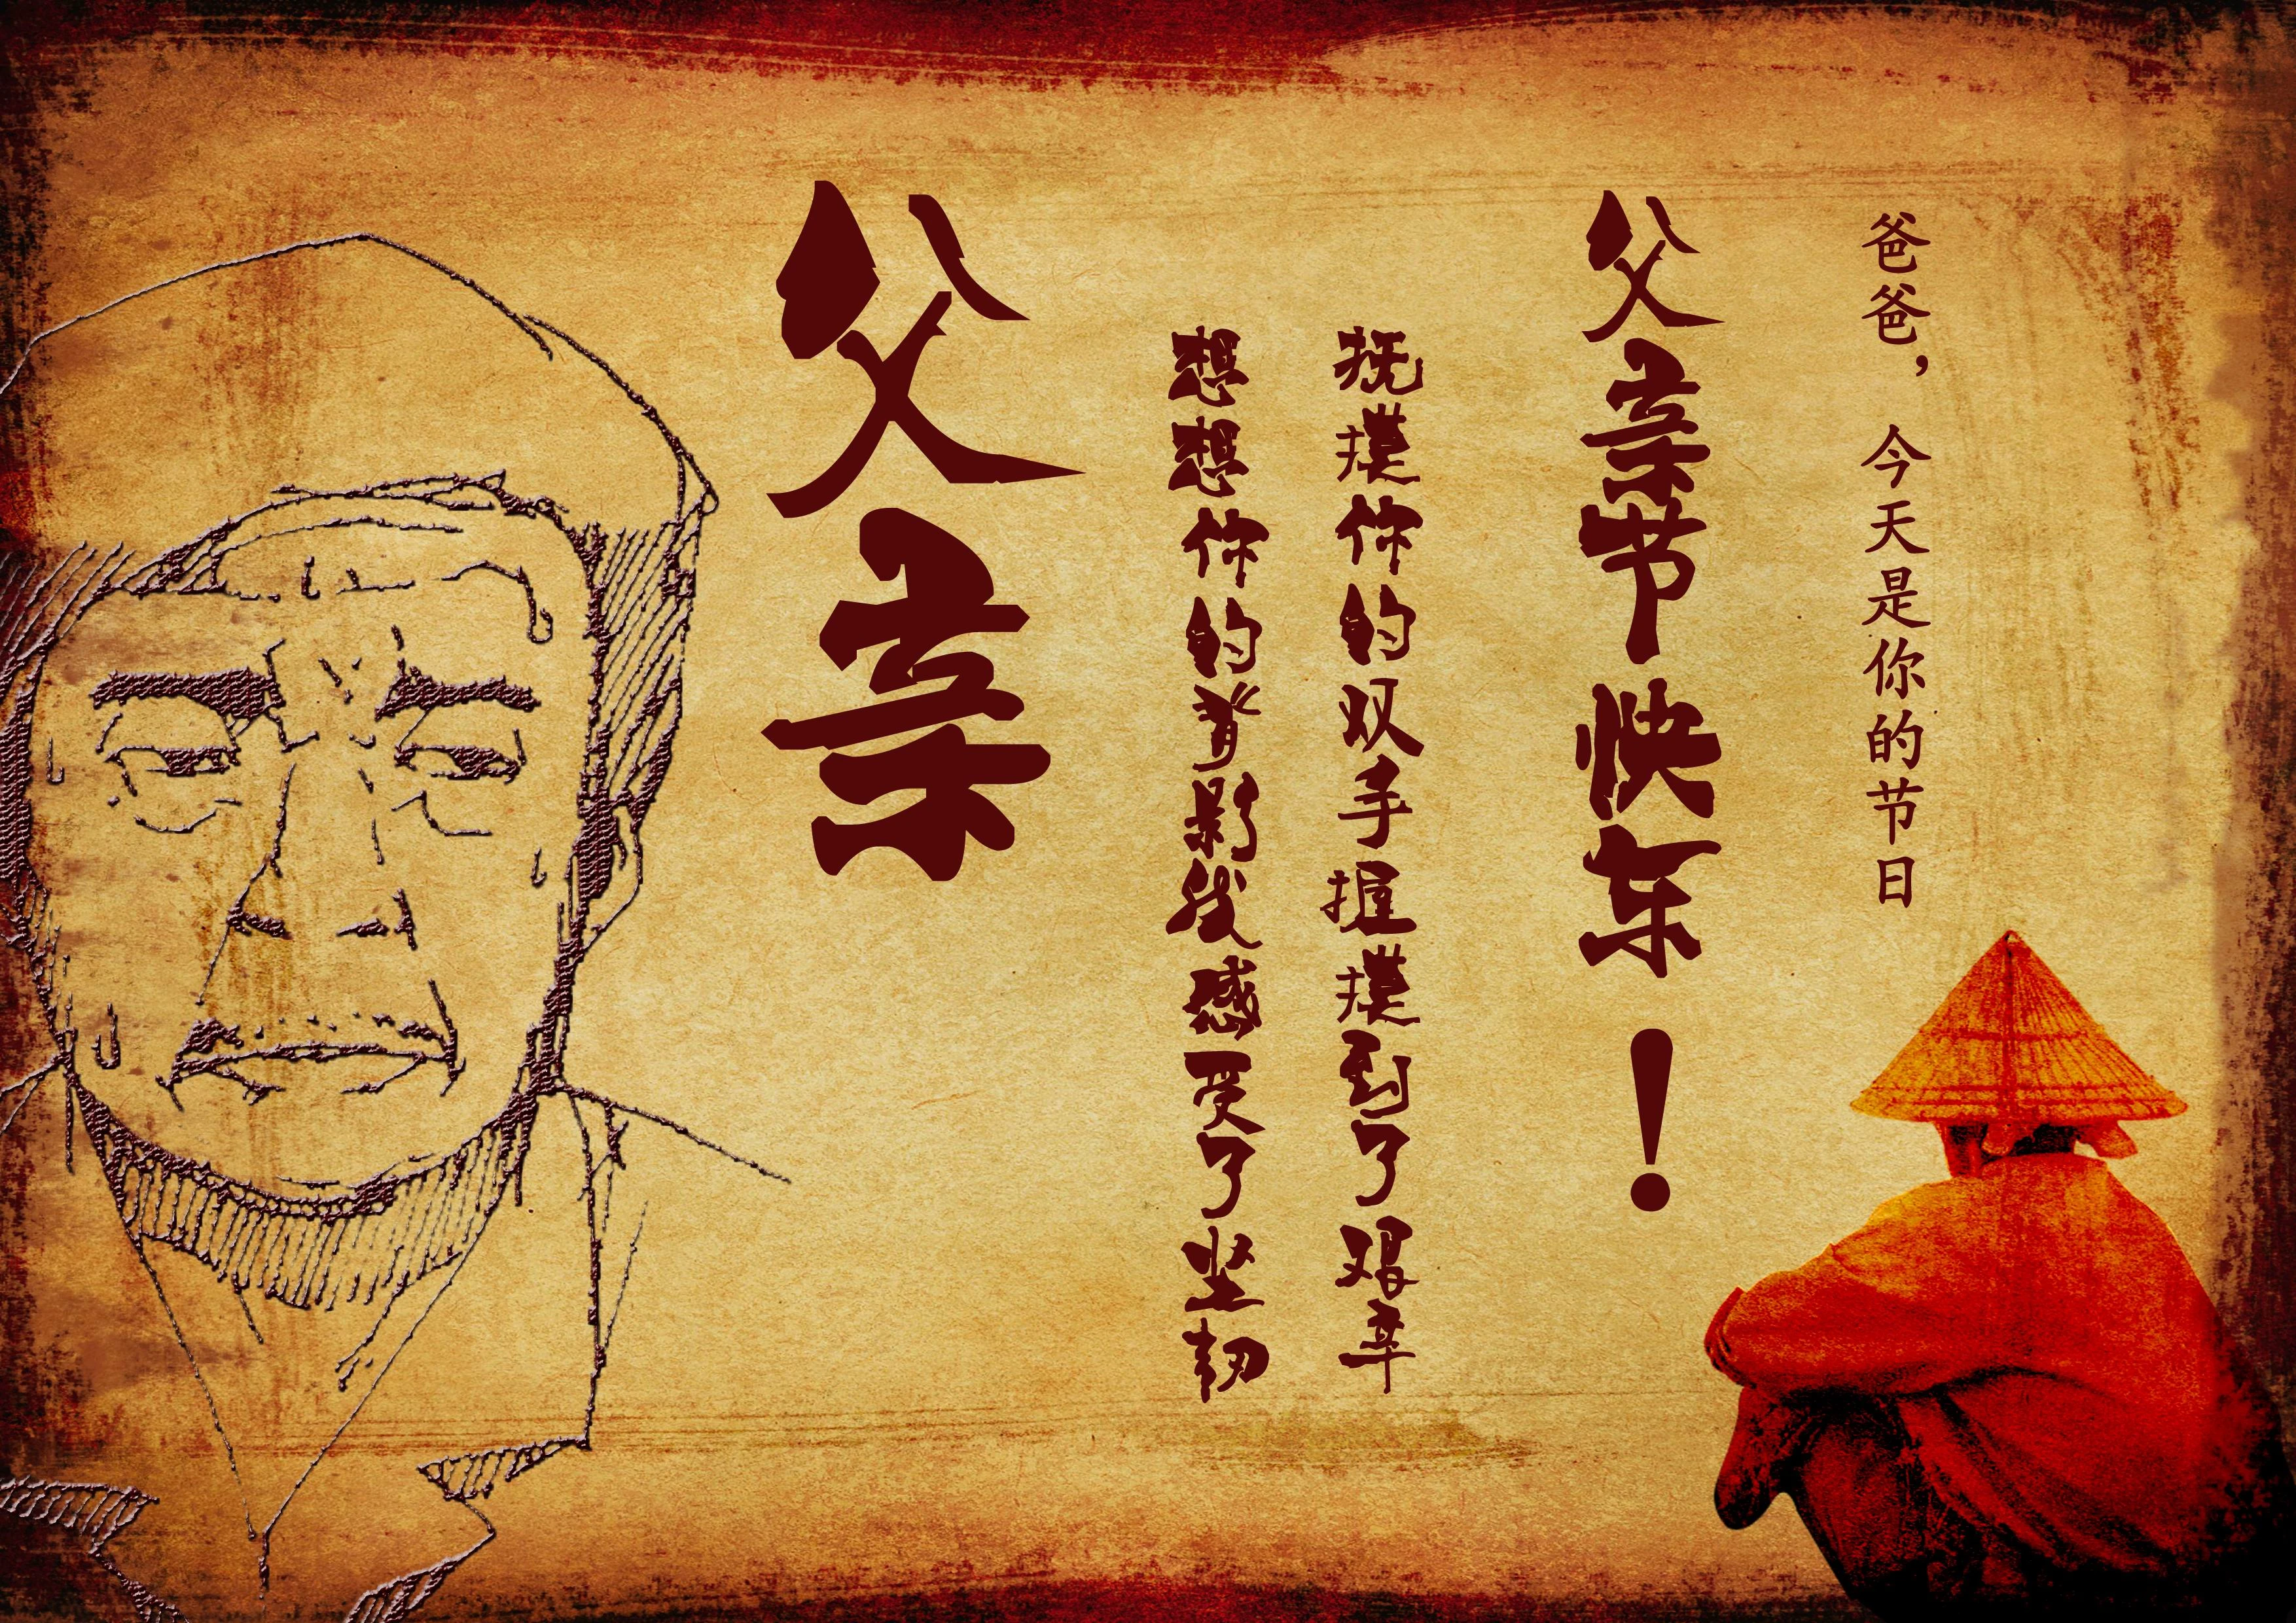 爸爸，今天是你的节日
父亲节快乐！
抚摸你的双手握摸到了艰辛
想想你的背影我感受了坚韧
父亲